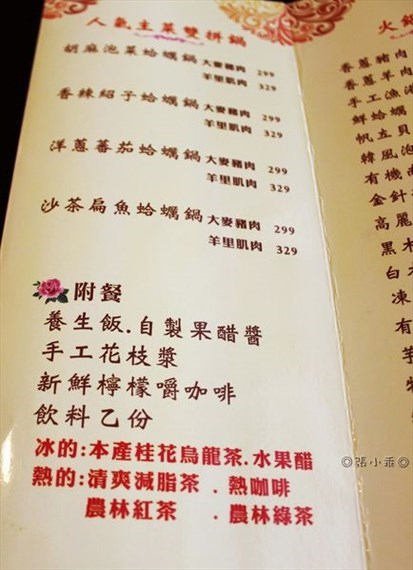 人氣主菜雙拼鍋
胡麻泡菜蛤蠣鍋 大麥豬肉 299
羊里肌肉 329
香辣紹子蛤蠣鍋 大麥豬肉 299
羊里肌肉 329
洋蔥蕃茄蛤蠣鍋 大麥豬肉 299
羊里肌肉 329
沙茶扁魚蛤蠣鍋 大麥豬肉 299
羊里肌肉 329
附餐
養生飯.自製果醋醬
手工花枝漿
新鮮檸檬嚼咖啡
飲料乙份
冰的:本產桂花烏龍茶.水果醋
熱的:清爽減脂茶 . 熱咖啡
農林紅茶 . 農林綠茶
火鍋
香蔥豬肉
香蔥羊肉
手工漁
鮮蛤蠣
帆立貝
韓風泡
有機
金針
高麗
黑木
白
凍
有
芋
◎張小乖◎